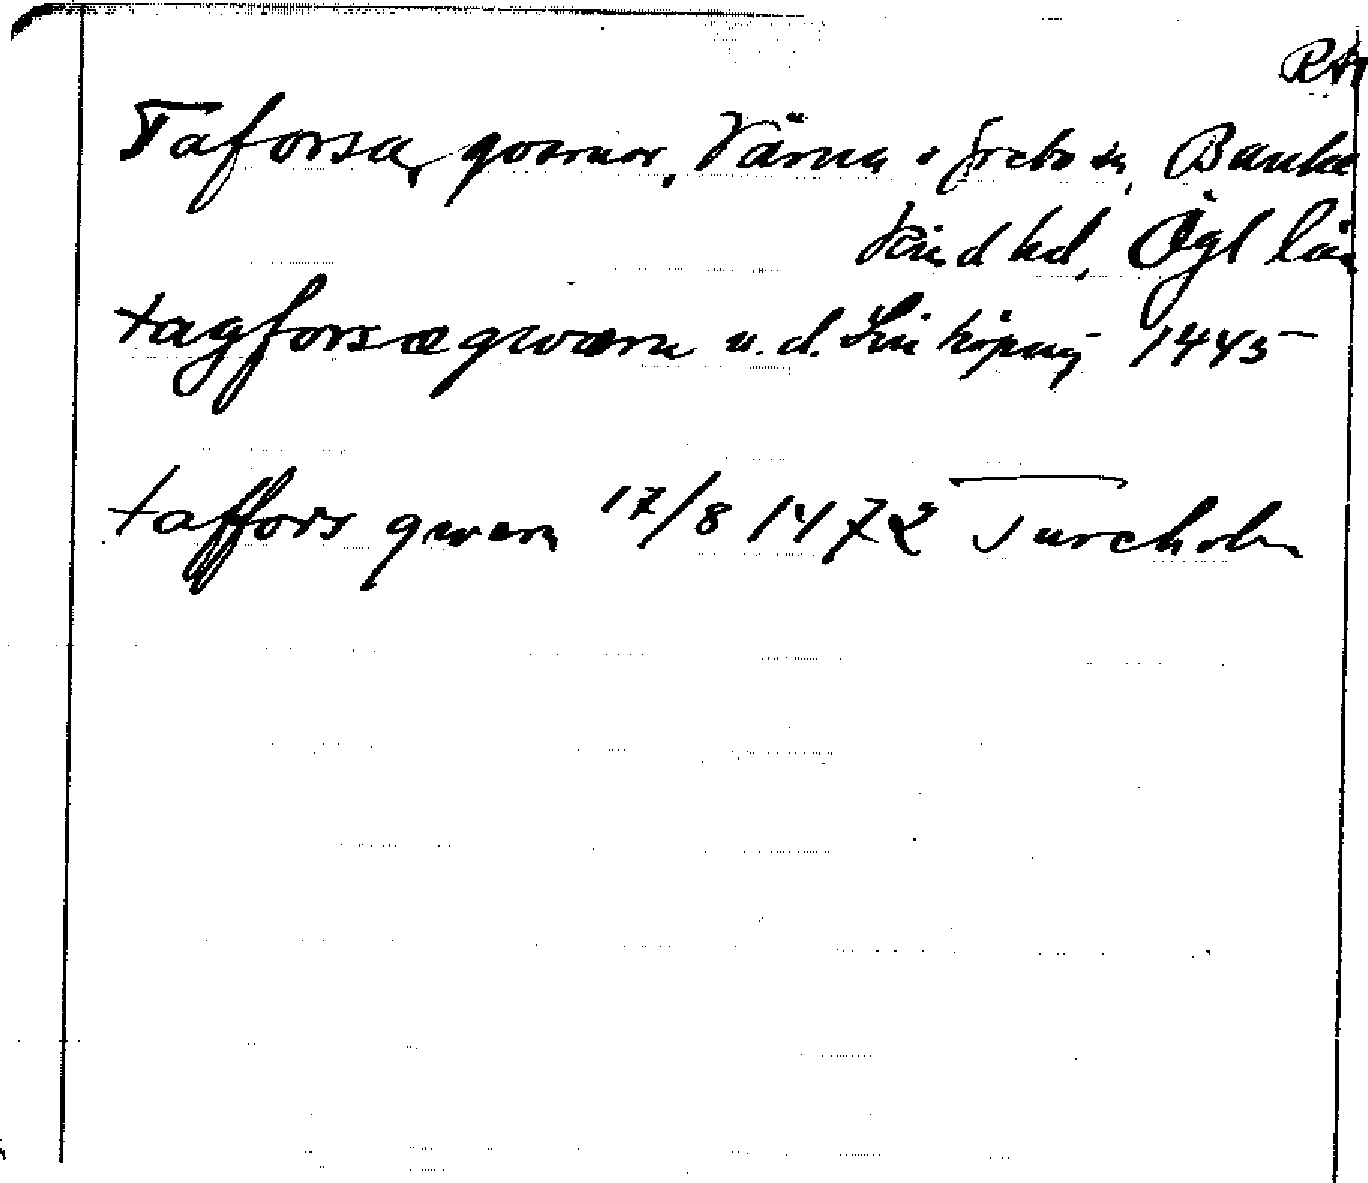 RA
Taforsa, qvarnar, Värna o Grebo sn, Banke
kind hd, Ögl län
tagforsæ qwærn u.d. Linköping 1445
taffors qwern 17/8 1472 Tureholm